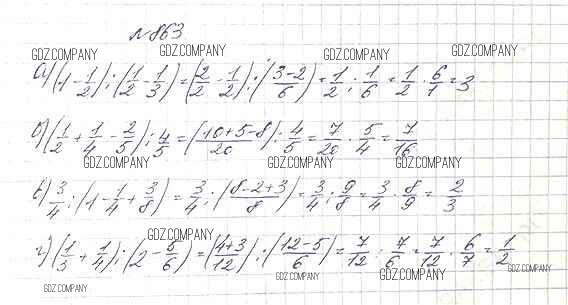 №863
GDZ.COMPANY GDZ.COMPANY GDZ.COMPANY GDZ.COMPANY
а) (1 - 1/2) : (1/2 - 1/3) = (2/2 - 1/2) : (3-2/6) = 1/2 : 1/6 = 1/2 · 6/1 = 3
б) (1/2 + 1/4 - 2/5) : 4/5 = (10+5-8/20) : 4/5 = 7/20 · 5/4 = 7/16
GDZ.COMPANY GDZ.COMPANY GDZ.COMPANY
в) 3/4 : (1 - 1/4 + 3/8) = 3/4 : (8-2+3/8) = 3/4 : 9/8 = 3/4 · 8/9 = 2/3
GDZ.COMPANY
г) (1/3 + 1/4) : (2 - 5/6) = (4+3/12) : (12-5/6) = 7/12 : 7/6 = 7/12 · 6/7 = 1/2
GDZ.COMPANY GDZ.COMPANY GDZ.COMPANY
GDZ.COMPANY